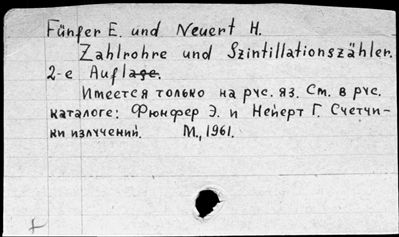 Fünfer E. und Neuert H.
Zahlrohre und Szintillationszähler.
2-e Auflage.
Имеется только на рус. яз. См. в рус.
каталоге: Фюнфер Э. и Нейерт Г. Счетчи-
ки излучений. М., 1961.